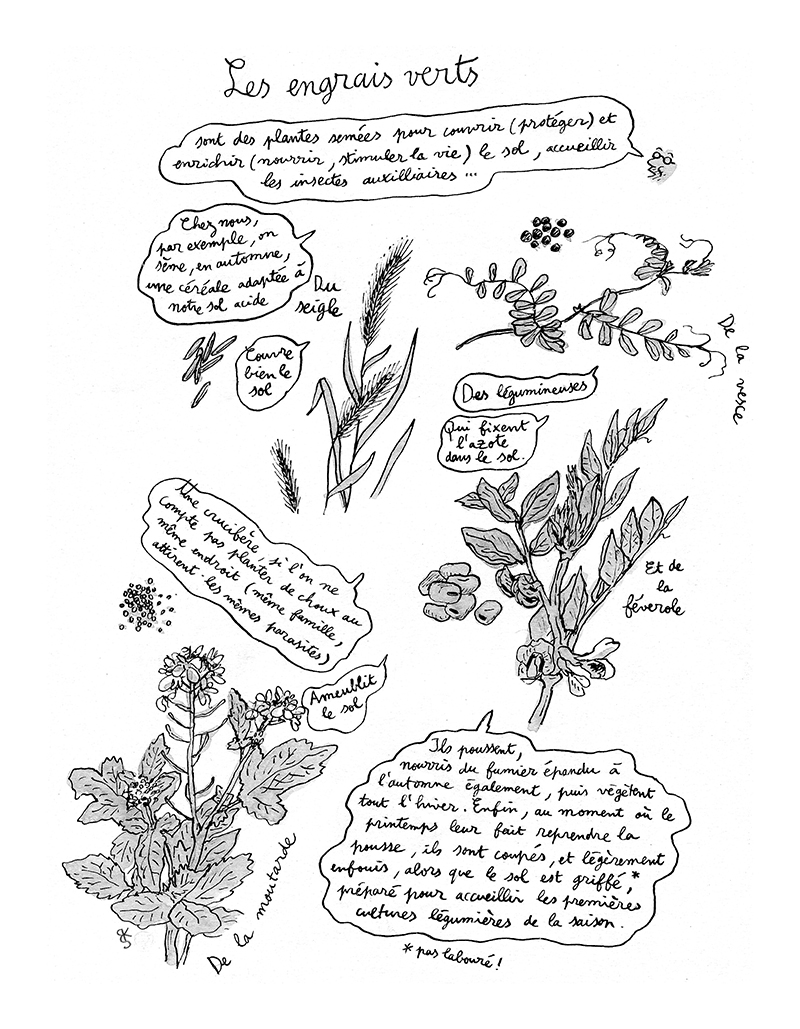 Les engrais verts
sont des plantes semées pour couvrir (protéger) et
enrichir (nourrir, stimuler la vie) le sol, accueillir
les insectes auxilliaires ...
Chez nous,
par exemple, on
sème, en automne,
une céréale adaptée à
notre sol acide
Du
seigle
Couvre
bien le
sol
De la vesce
Des légumineuses
Qui fixent
l'azote
dans le sol.
Et de
la
féverole
Une crucifère, si l'on ne
compte pas planter de choux au
même endroit (même famille,
attirent les mêmes parasites)
Ameublit
le sol
De la moutarde
Ils poussent,
nourris du fumier épandu à
l'automne également, puis végètent
tout l'hiver. Enfin, au moment où le
printemps leur fait reprendre la
pousse, ils sont coupés, et légèrement
enfouis, alors que le sol est griffé,*
préparé pour accueillir les premières
cultures légumières de la saison.
* pas labouré !